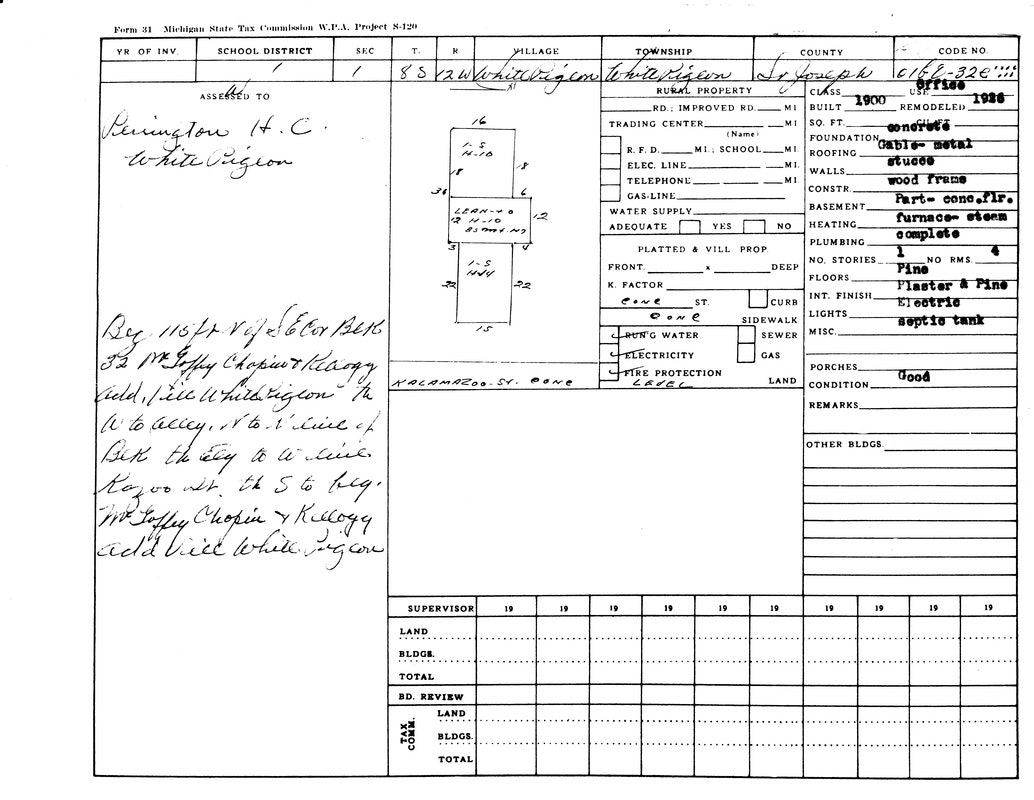 Form 31 Michigan State Tax Commission W.P.A. Project S-120
YR OF INV. SCHOOL DISTRICT SEC T. R VILLAGE TOWNSHIP COUNTY CODE NO.
1 1 8 S 12 W White Pigeon White Pigeon St Joseph
ASSESSED TO
Pennington H. C.
White Pigeon
Beg 115 ft N of S E Cor Blk
32 McGaffey Chapin & Kellogg
add, Vill White Pigeon th
W to alley, N to N line of
Blk th Ely to W line
Kazoo St. th S to beg.
McGaffey Chapin & Kellogg
add Vill White Pigeon
16
1-S
H-10
18 18
36 6
LEAN-TO
12 H-10 12
3 4
1-S
H-14
22 22
15
KALAMAZOO-ST. CONC
RURAL PROPERTY
RD.; IMPROVED RD. MI
TRADING CENTER MI.
(Name)
R. F. D. MI.; SCHOOL MI.
ELEC. LINE MI.
TELEPHONE MI.
GAS-LINE
WATER SUPPLY
ADEQUATE YES NO
PLATTED & VILL PROP.
FRONT. x DEEP
K. FACTOR
CONC ST. CURB
CONC SIDEWALK
RUN'G WATER SEWER
ELECTRICITY GAS
FIRE PROTECTION
LEVEL LAND
CLASS USE Office
BUILT 1900 REMODELED 1926
SQ. FT.
FOUNDATION concrete
ROOFING Gable- metal
WALLS stucco
CONSTR. wood frame
BASEMENT Part- conc.flr.
HEATING furnace- steam
PLUMBING complete
NO. STORIES 1 NO RMS. 4
FLOORS Pine
INT. FINISH Plaster & Pine
LIGHTS Electric
MISC. septic tank
PORCHES
CONDITION Good
REMARKS
OTHER BLDGS.
SUPERVISOR 19 19 19 19 19 19 19 19 19 19
LAND
BLDGS.
TOTAL
BD. REVIEW
TAX COMM.
LAND
BLDGS.
TOTAL